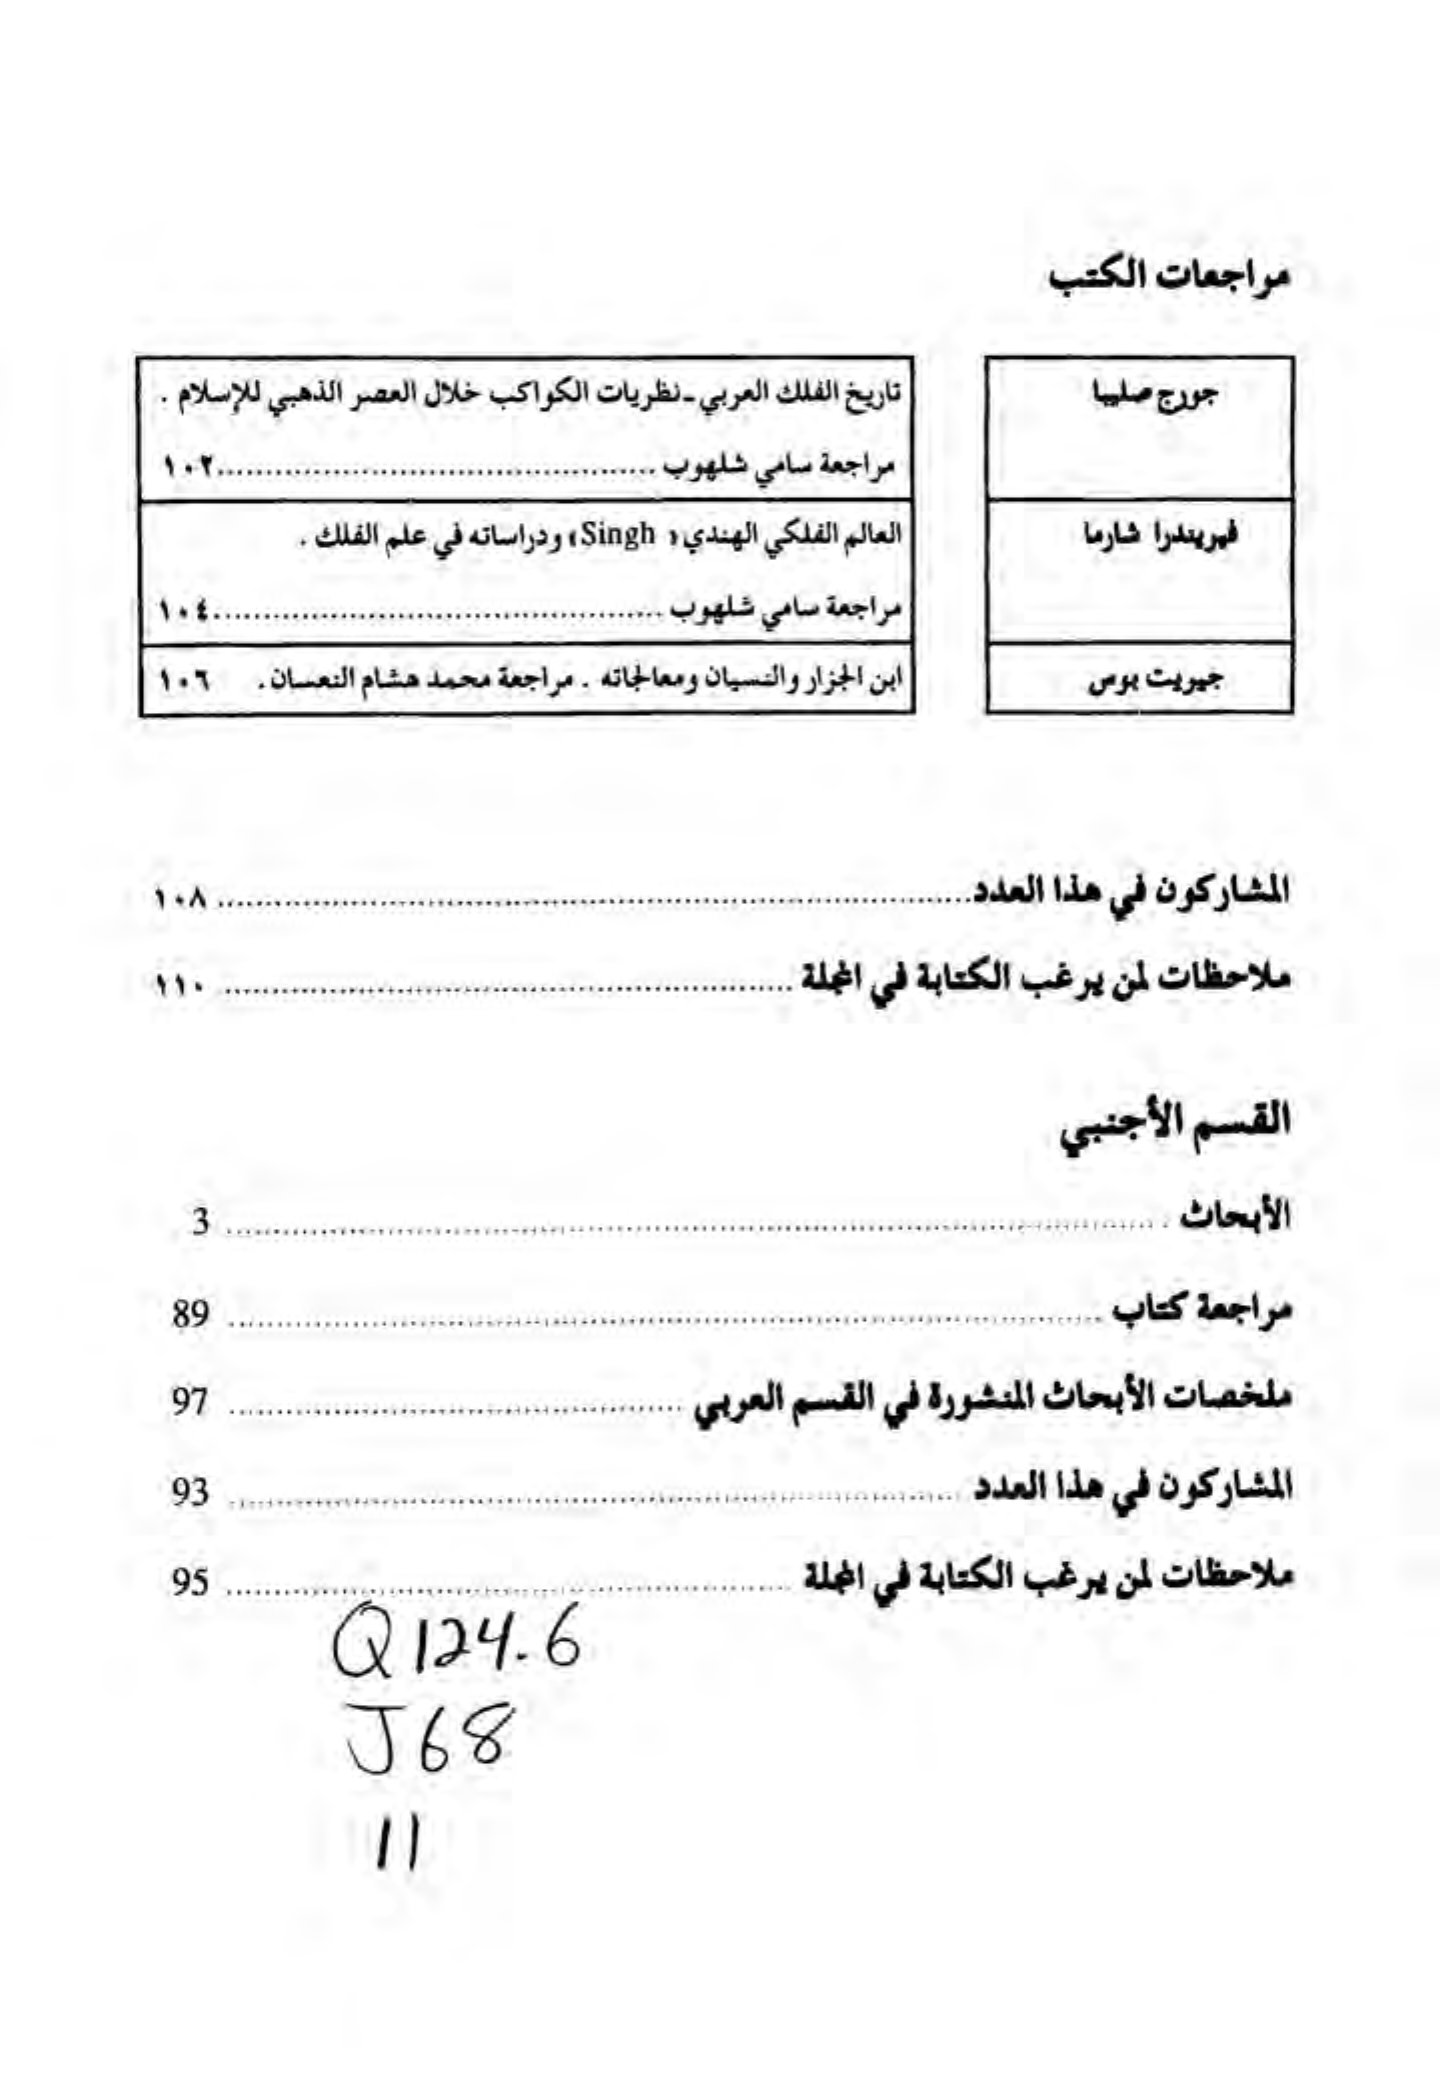 مراجعات الكتب
جورج صليبا
تاريخ الفلك العربي - نظريات الكواكب خلال العصر الذهبي للإسلام .
مراجعة سامي شلهوب ............................................ ١٠٢
فيريندرا شارما
العالم الفلكي الهندي « Singh » ودراساته في علم الفلك .
مراجعة سامي شلهوب ............................................ ١٠٤
جيريت بوس
ابن الجزار والنسيان ومعالجاته . مراجعة محمد هشام النعسان . ١٠٦
المشاركون في هذا العدد ............................................ ١٠٨
ملاحظات لمن يرغب الكتابة في المجلة ............................................ ١١٠
القسم الأجنبي
الأبحاث ............................................ 3
مراجعة كتاب ............................................ 89
ملخصات الأبحاث المنشورة في القسم العربي ............................................ 97
المشاركون في هذا العدد ............................................ 93
ملاحظات لمن يرغب الكتابة في المجلة ............................................ 95
Q124.6
J68
11